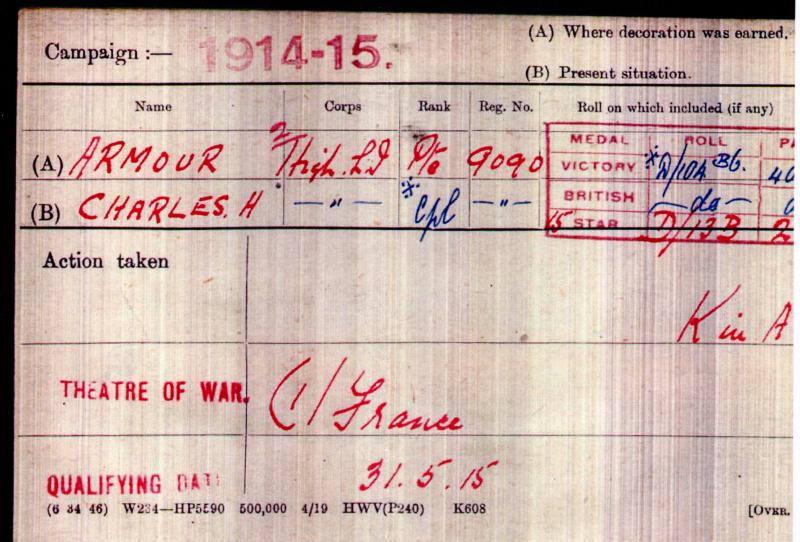 Campaign :— 1914-15. (A) Where decoration was earned.
(B) Present situation.
Name Corps Rank Reg. No. Roll on which included (if any)
MEDAL ROLL PA
(A) ARMOUR 2/High. L.I Pte 9090 VICTORY *D/104 B6. 40
(B) CHARLES. H —"— *Cpl —"— BRITISH —do—
15 STAR D/13B 2
Action taken
K in A
THEATRE OF WAR. (1) France
QUALIFYING DATE 31.5.15
(6 34 46) W234—HP5590 500,000 4/19 HWV(P240) K608 [OVER.